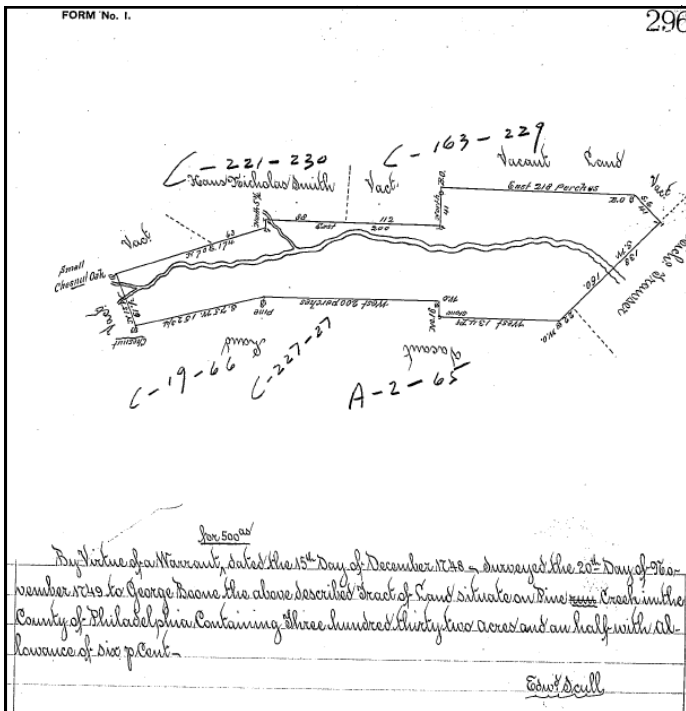 FORM No. 1.
296
C-163-229
C-221-230
Vacant Land
Hans Nicholas Smith
Vact.
East 218 Perches
B.O.
Vact
88
112
East
200
63
Vact.
Small
Chesnut Oak
Vact.
Chesnut
S.75 W. 152 3/4
Pine
West 200 perches
West 134
160.
22 W.O.
Land
Vacant
C-19-66
C-227-27
A-2-65
for 500 as
By Virtue of a Warrant, dated the 15th Day of December 1748 - Surveyed the 20th Day of No-
vember 1749 to George Boone the above described Tract of Land situate on Pine run Creek in the
County of Philadelphia Containing Three hundred thirty two acres and an half with al-
lowance of six p Cent -
Edwd Scull